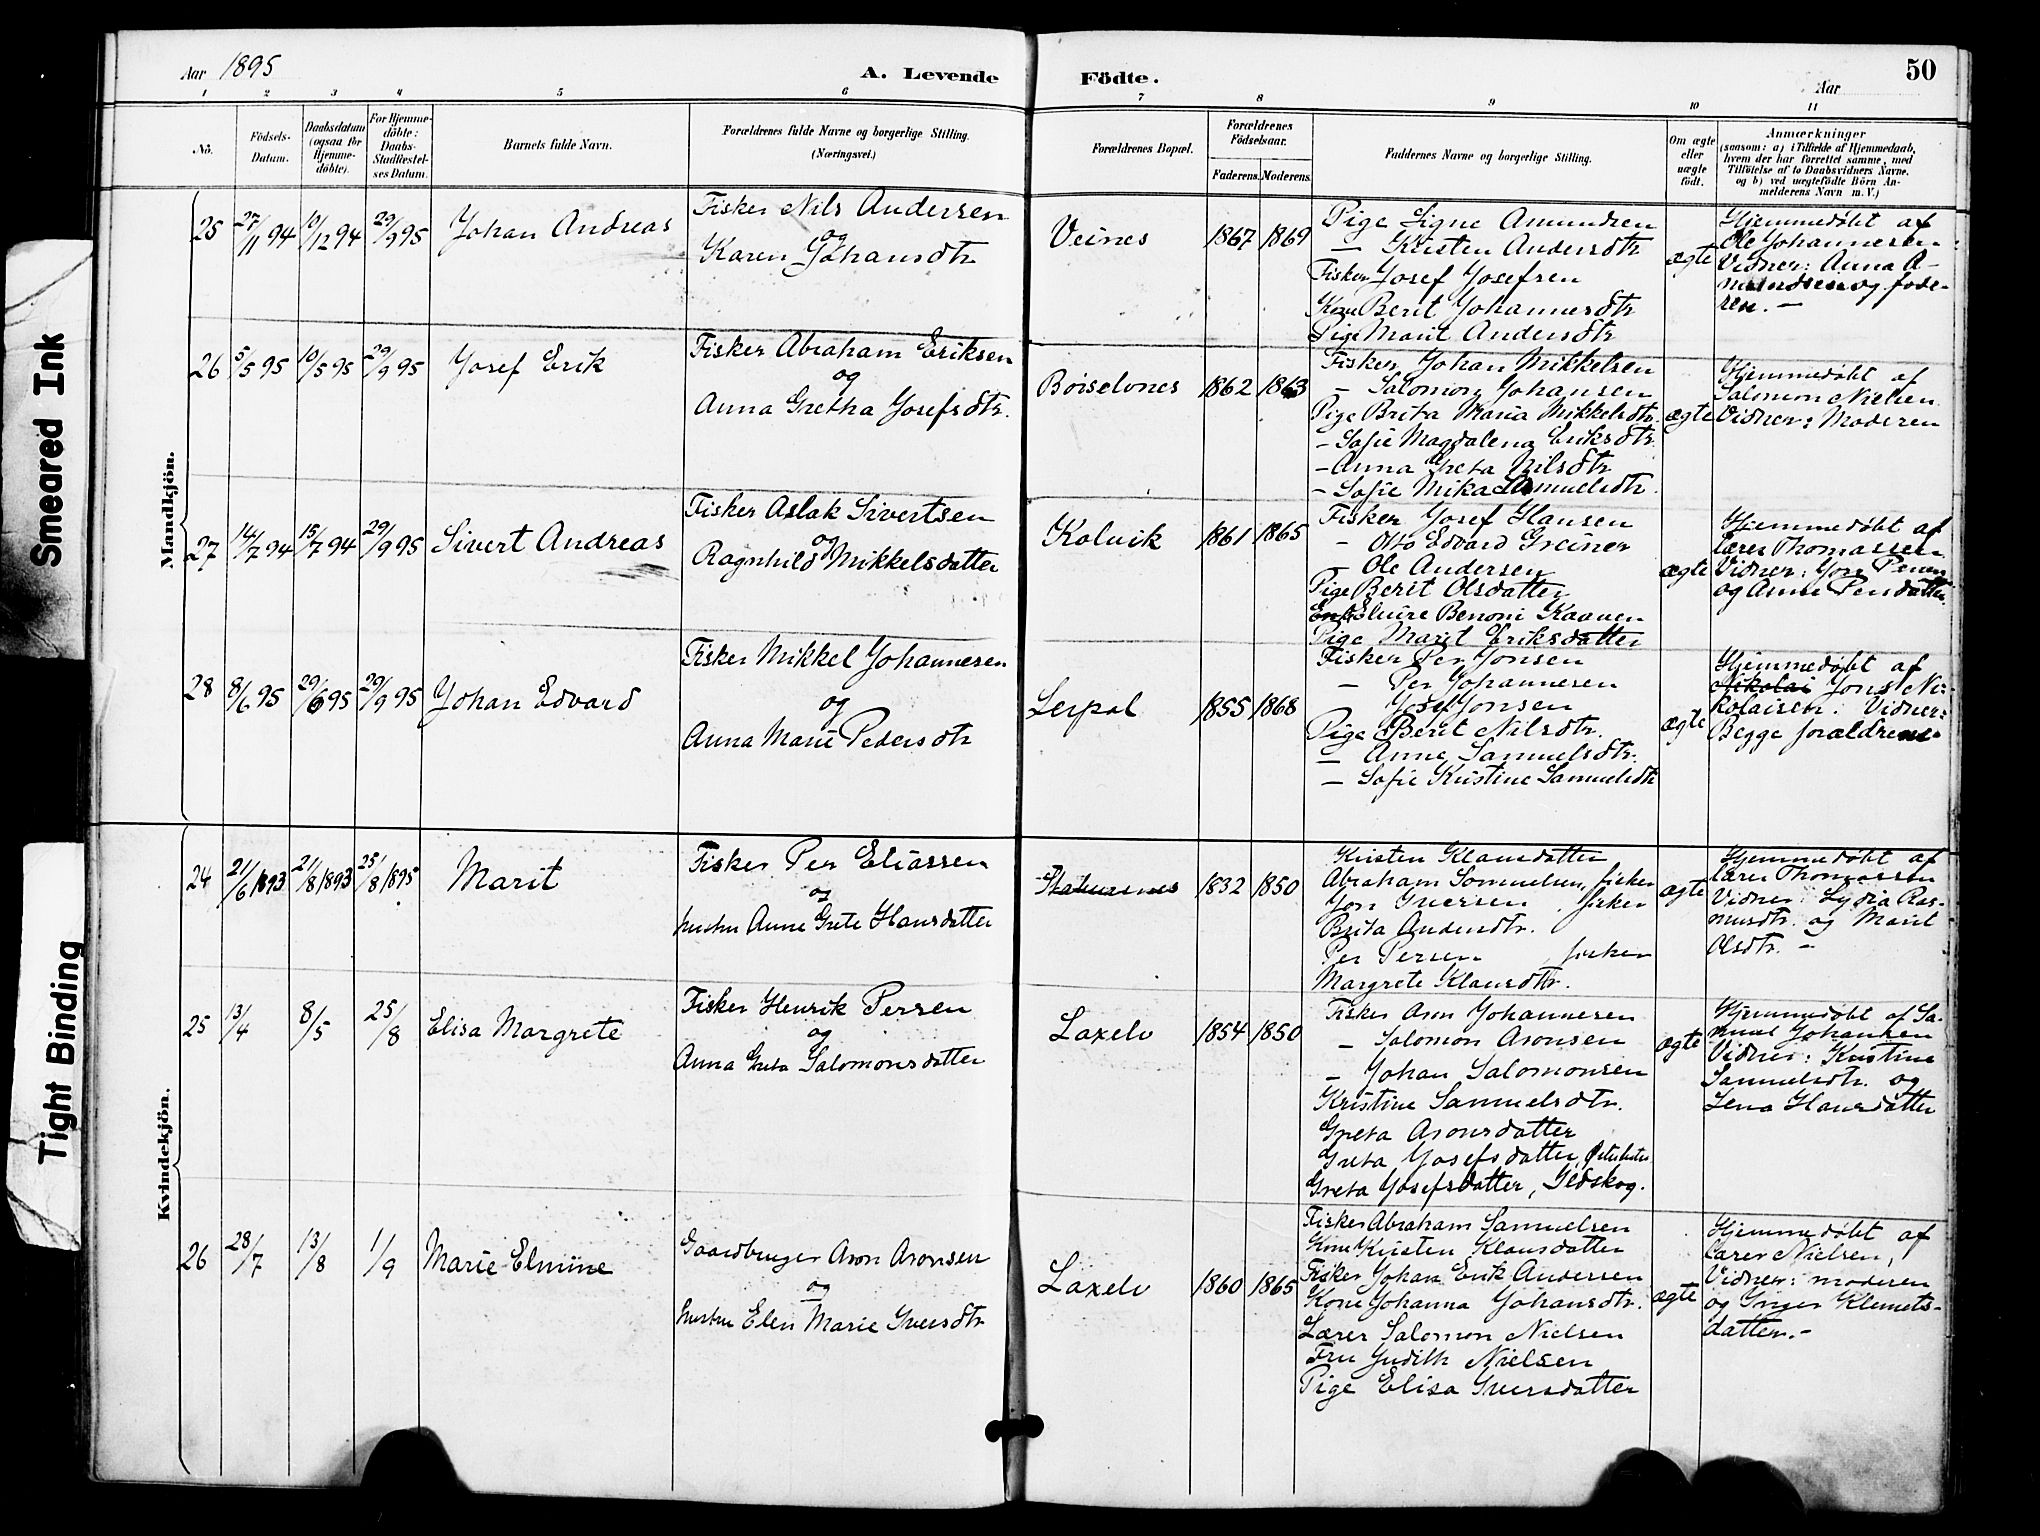 Smeared Ink
Tight Binding
Aar 1895
A. Levende Födte.
Aar
50
1 2 3 4 5 6 7 8 9 10 11
No.
Födsels-
Datum.
Daabsdatum
(ogsaa for
Hjemme-
döbte).
For Hjemme-
döbte:
Daabs-
Stadfæstel-
ses Datum.
Barnets fulde Navn.
Forældrenes fulde Navne og borgerlige Stilling.
(Næringsvei.)
Forældrenes Bopæl.
Forældrenes
Födselsaar.
Faderens. Moderens.
Faddernes Navne og borgerlige Stilling.
Om ægte
eller
uægte
födt.
Anmærkninger
(saasom: a) i Tilfælde af Hjemmedaab,
hvem der har forrettet samme, med
Tilföielse af to Daabsvidners Navne.
og b) ved uægtefödte Börn An-
melderens Navn m. V.)
Mandkjön.
25 27/11 94 10/12 94 29/9 95 Johan Andreas
Fisker Nils Andersen
og
Karen Johansdtr
Veines 1867 1869
Pige Signe Amundsen
— Kristen Andersdtr
Fisker Josef Josefsen
Kone Berit Johannesdtr
Pige Marit Andersdtr
ægte
Hjemmedøbt af
Ole Johannesen
Vidner: Anna A-
mundsen og fade-
ren. —
26 5/5 95 10/5 95 29/9 95 Josef Erik
Fisker Abraham Eriksen
og
Anna Gretha Josefsdtr.
Börselvnes 1862 1863
Fisker Johan Mikkelsen
— Salomon Johansen
Pige Brita Maria Mikkelsdtr.
— Sofie Magdalena Eriksdtr
— Anna Greta Nilsdtr
— Sofie Mika Samuelsdtr.
ægte
Hjemmedøbt af
Salomon Nielsen
Vidner: Moderen
27 14/7 94 15/7 94 29/9 95 Sivert Andreas
Fisker Aslak Sivertsen
og
Ragnhild Mikkelsdatter
Kolvik 1861 1865
Fisker Josef Hansen
— Otto Edvard Greiner
— Ole Andersen
Pige Berit Olsdatter
Enke Elvire Benoni Kaaven
Pige Marit Eriksdatter
ægte
Hjemmedøbt af
lærer Thomassen
Vidner: Jon Persen
og Anne Persdatter.
28 8/6 95 29/6 95 29/9 95 Johan Edvard
Fisker Mikkel Johannesen
og
Anna Marie Pedersdtr
Lerpol 1855 1868
Fisker Per Jonsen
— Per Johannesen
Josef Jonsen
Pige Berit Nilsdtr.
— Anne Samuelsdtr.
— Sofie Kristine Samuelsdtr
ægte
Hjemmedøbt af
Nikolai Jons Ni-
kolaisen. Vidner:
Begge forældrene.
Kvindekjön.
24 21/6 1893 21/8 1893 25/8 1895 Marit
Fisker Per Eliassen
og
hustru Anne Grete Hansdatter
1832 1850
Kristen Klausdatter
Abraham Samuelsen, fisker
Jon Iversen, fisker
Brita Andersdtr.
Per Persen, fisker
Margrete Klausdtr.
ægte
Hjemmedøbt af
lærer Thomassen
Vidner: Lydia Ras-
musdtr. og Marit
Olsdtr. —
25 13/4 8/5 25/8 Elisa Margrete
Fisker Henrik Persen
og
Anna Greta Salomonsdatter
Laxelv 1854 1850
Fisker Aron Johannesen
— Salomon Aronsen
— Johan Salomonsen
Kristine Samuelsdtr.
Greta Aronsdatter
Greta Josefsdatter,
Greta Josefsdatter, Ildskog.
ægte
Hjemmedøbt af Sa-
muel Johansen
Vidner: Kristine
Samuelsdtr. og
Lena Hansdatter
26 28/7 13/8 1/9 Marie Elmine
Gaardbruger Aron Aronsen
og
hustru Elen Marie Iversdtr
Laxelv 1860 1865
Fisker Abraham Samuelsen
Kone Kristen Klausdatter
Fisker Johan Erik Andersen
Kone Johanna Johansdtr.
Lærer Salomon Nielsen
Fru Judith Nielsen
Pige Elisa Iversdatter
ægte
Hjemmedøbt af
lærer Nielsen,
Vidner: moderen
og Inger Klemets-
datter. —